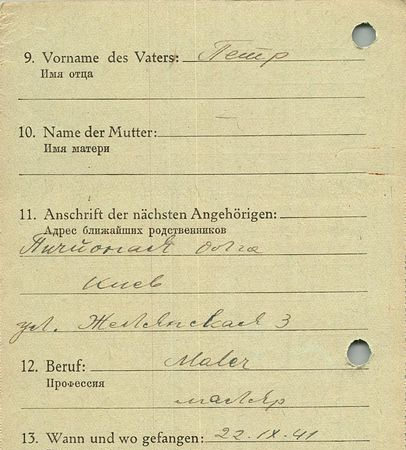 9. Vorname des Vaters: Петр
Имя отца
10. Name der Mutter:
Имя матери
11. Anschrift der nächsten Angehörigen:
Адрес ближайших родственников
Ольга
Киев
ул. Жилянская 3
12. Beruf: Maler
Профессия
маляр
13. Wann und wo gefangen: 22.IX.41